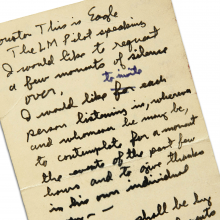 Houston This is Eagle
The LM Pilot speaking
I would like to request
a few moments of silence
over.
to invite
I would like for each
person listening in, wherever
and whomever he may be,
to contemplate for a moment
the events of the past few
hours and to give thanks
in his own individual
way —
shall be